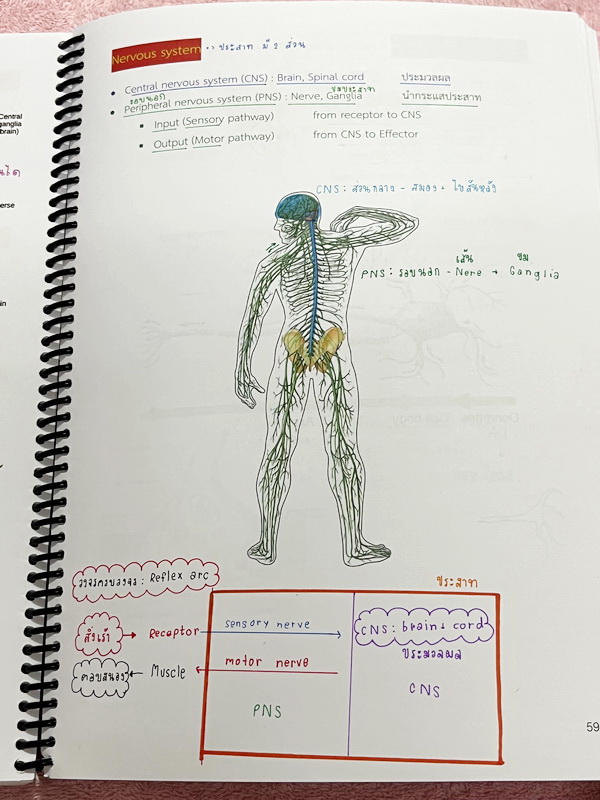 Nervous system •> ประสาท มี 2 ส่วน
• Central nervous system (CNS) : Brain, Spinal cord ประมวลผล
รอบนอก ปมประสาท
• Peripheral nervous system (PNS) : Nerve, Ganglia นำกระแสประสาท
▪ Input (Sensory pathway) from receptor to CNS
▪ Output (Motor pathway) from CNS to Effector
Central
ganglia
brain)
erse
CNS : ส่วนกลาง - สมอง + ไขสันหลัง
เส้น ปม
PNS : รอบนอก - Nere + Ganglia
วงจรครบวงจร : Reflex arc
ประสาท
สิ่งเร้า → Receptor sensory nerve CNS : brain + cord
ประมวลผล
ตอบสนอง ← Muscle motor nerve
CNS
PNS
59